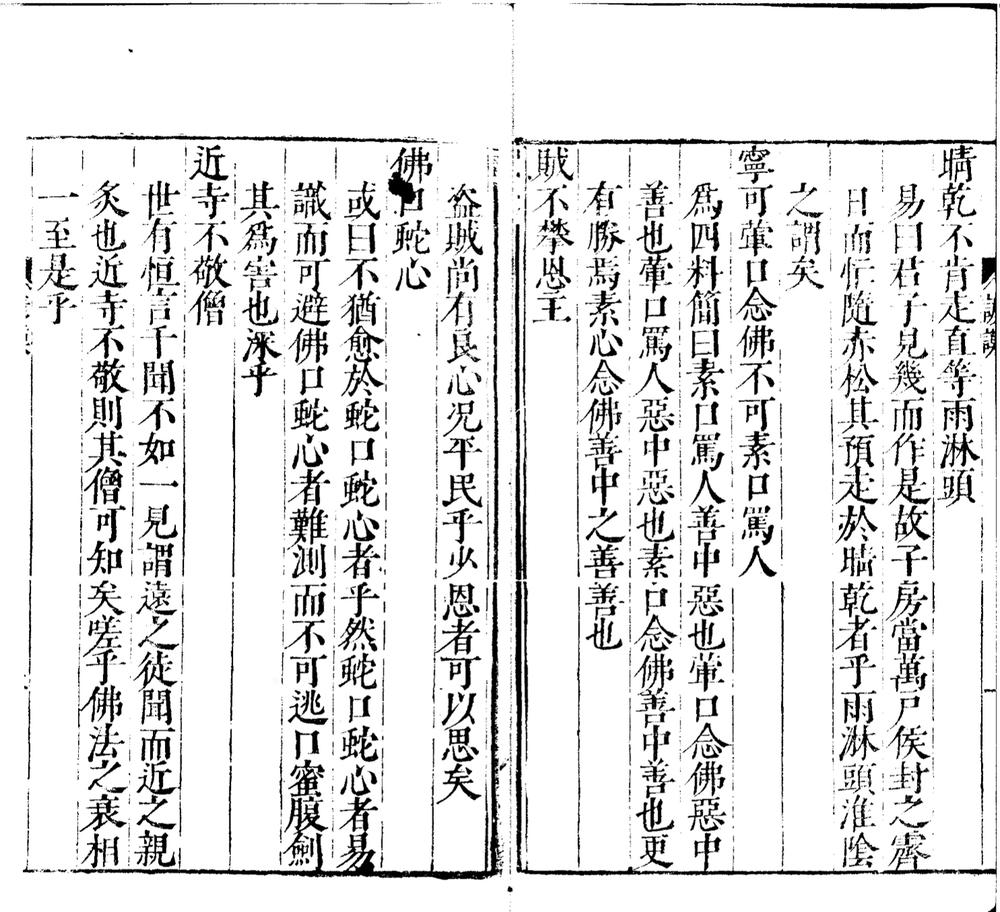 晴乾不肯走直等雨淋頭
易曰君子見幾而作是故子房當萬戶侯封之霽
日而忻隨赤松其預走於晴乾者乎雨淋頭淮陰
之謂矣
寧可葷口念佛不可素口罵人
爲四料簡曰素口罵人善中惡也葷口念佛惡中
善也葷口罵人惡中惡也素口念佛善中善也更
有勝焉素心念佛善中之善善也
賊不攀恩主
盜賊尚有良心况平民乎少恩者可以思矣
佛口蛇心
或曰不猶愈於蛇口蛇心者乎然蛇口蛇心者易
識而可避佛口蛇心者難測而不可逃口蜜腹劍
其爲害也深乎
近寺不敬僧
世有恒言千聞不如一見謂遠之徒聞而近之親
炙也近寺不敬則其僧可知矣嗟乎佛法之衰相
一至是乎